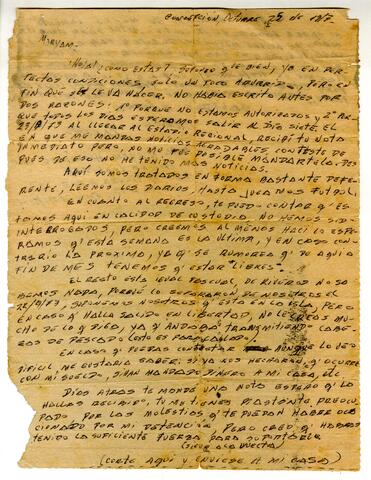 CONCEPCION, OCTUBRE 25 de 1973.
MIRYAM:
¡Hola! ¿COMO ESTAS? SUPONGO q' BIEN, YO EN PER-
FECTAS CONDICIONES SOLO UN POCO ABURRIDO, PERO EN
FIN QUE SE LE VA HACER, NO HABIA ESCRITO ANTES POR
DOS RAZONES: 1º PORQUE NO ESTAMOS AUTORIZADOS Y 2º POR-
QUE TODOS LOS DIAS ESPERAMOS SALIR. EL DIA SIETE, EL
AL LLEGAR AL ESTADIO REGIONAL, RECIBI TU NOTA
EN QUE ME MANDAS NOTICIAS AGRADABLES CONTESTE DE
INMEDIATO PERO, NO ME FUE POSIBLE MANDARTELA. DES-
PUES DE ESO NO HE TENIDO MAS NOTICIAS.
AQUI SOMOS TRATADOS EN FORMA BASTANTE DEFE-
RENTE, LEEMOS LOS DIARIOS, HASTA JUGAMOS FUTBOL.
EN CUANTO AL REGRESO, TE PUEDO CONTAR q' ES-
TAMOS AQUI EN CALIDAD DE CUSTODIA. NO HEMOS SIDO
INTERROGADOS, PERO CREEMOS AL MENOS LO ESPE-
RAMOS q' ESTA SEMANA ES LA ULTIMA, Y EN CASO CON-
TRARIO LA PROXIMA, YA q' SE RUMOREA q' DE AQUI A
FIN DE MES TENEMOS q' ESTAR "LIBRES".
EL RESTO ESTA IGUAL PASCUAL, DE RIVEROS NO SA-
BEMOS NADA, PORQUE LO SEPARARON DE NOSOTROS EL
SUPONEMOS NOSOTROS q' ESTA EN LA ISLA, PERO
EN CASO q' HALLA SALIDO EN LIBERTAD, NO LE CREAS MU-
CHO DE LO q' DIGA, YA q' ANDABA TRANSMITIENDO CABE-
ZAS DE PESCADO
EN CASO q' PUEDAS CONTESTAR AUNQUE LO VEO
DIFICIL, ME GUSTARIA SABER: SI YA NOS HECHARON, q' OCURRE
CON MI SUELDO, SI HAN MANDADO DINERO A MI CASA, ETC
DIAS ATRAS TE MANDE UNA NOTA ESPERO q' LA
HALLAS RECIBIDO, TU ME TIENES BASTANTE PREOCU-
PADO, POR LAS MOLESTIAS q' TE PUEDAN HABER OCA-
CIONADO POR MI DETENCION, PERO CREO q' HABRAS
TENIDO LA SUFICIENTE FUERZA PARA SOPORTARLA
(SIGUE A LA VUELTA)
(CORTE AQUI Y ENVIESE A MI CASA)